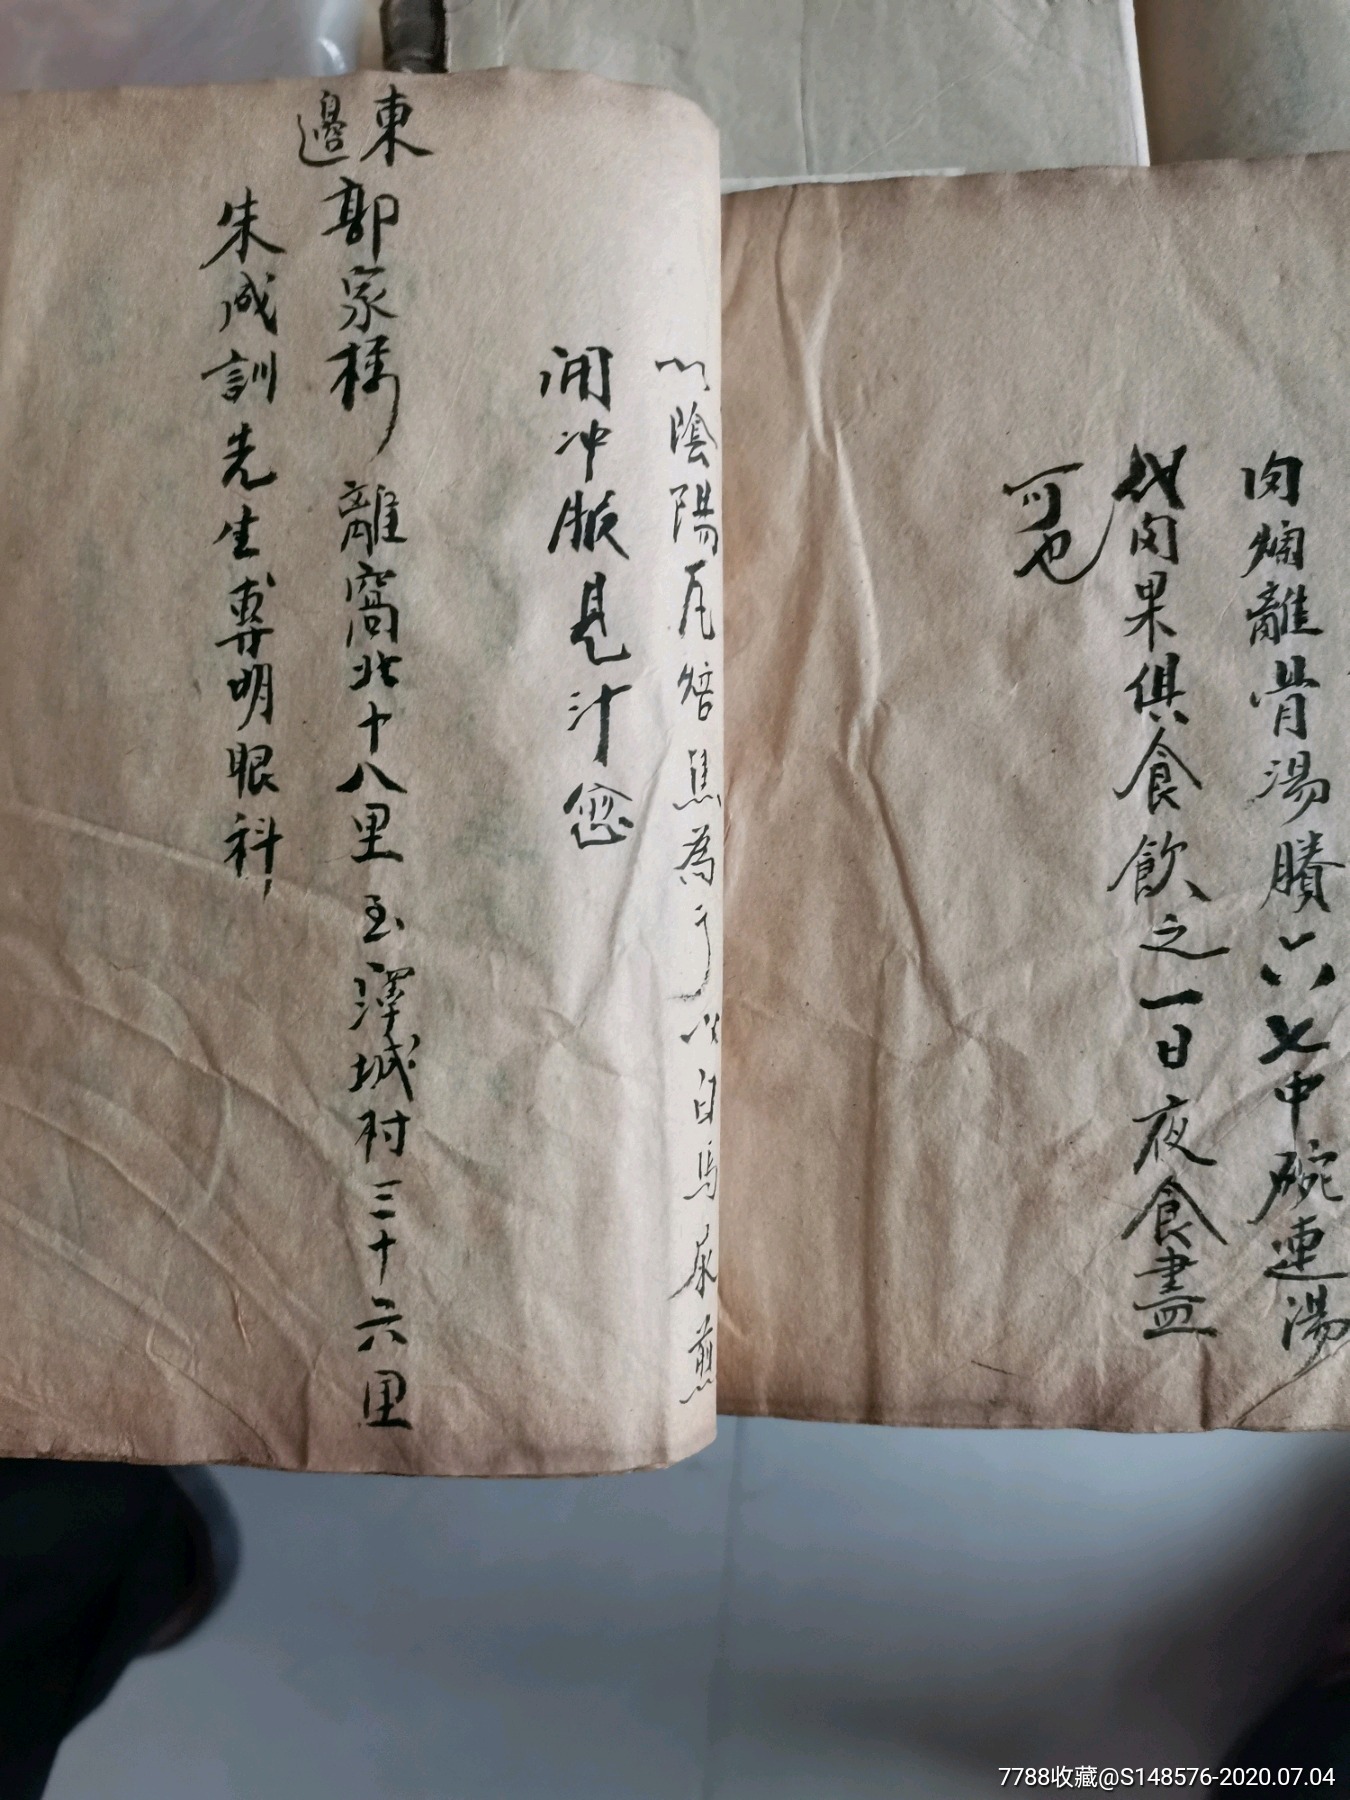 肉爛離骨湯賸六七中碗連湯
代肉果俱食飲之一日夜食盡
可也
以陰陽瓦焙焦為 以白馬尿煎
開冲服見汁愈
東邊郭家樓 離窩北十八里 至澤城村三十六里
朱成訓先生專明眼科
7788收藏@S148576-2020.07.04